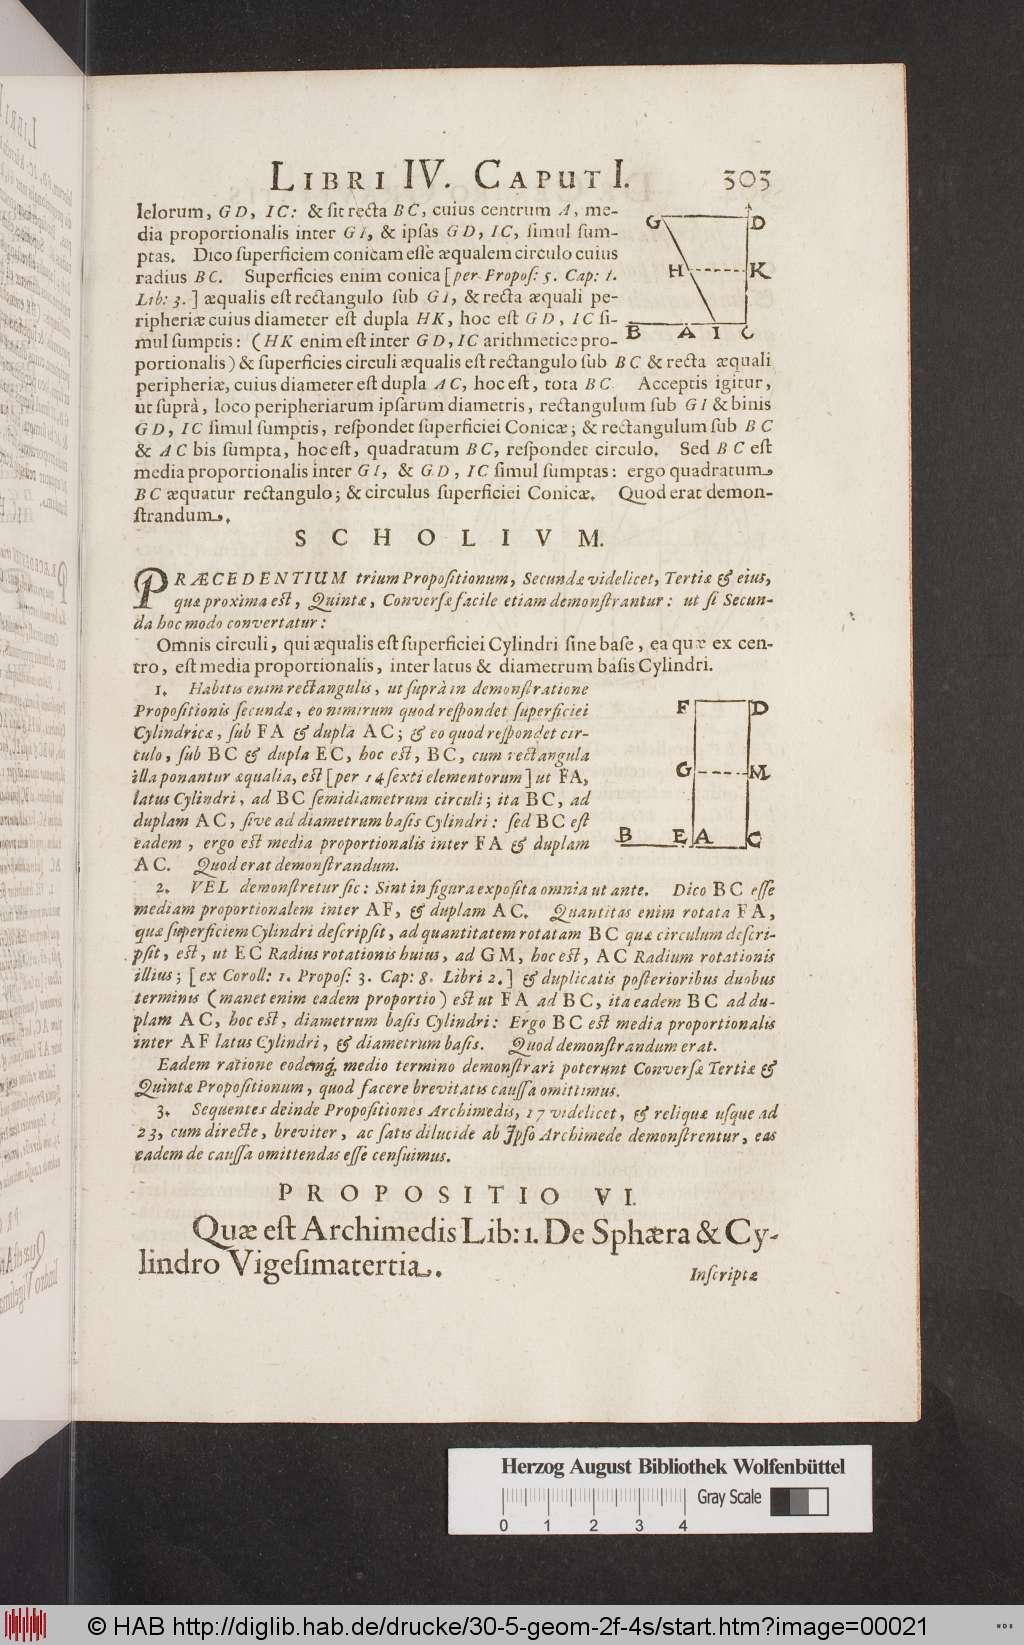 LIBRI IV. CAPUT I. 303
lelorum, GD, IC: & sit recta BC, cuius centrum A, me-
dia proportionalis inter GI, & ipsas GD, IC, simul sum-
ptas. Dico superficiem conicam esse æqualem circulo cuius
radius BC. Superficies enim conica [per Propos: 5. Cap: 1.
Lib: 3.] æqualis est rectangulo sub GI, & recta æquali pe-
ripheriæ cuius diameter est dupla HK, hoc est GD, IC si-
mul sumptis: (HK enim est inter GD, IC arithmetice pro-
portionalis) & superficies circuli æqualis est rectangulo sub BC & recta æquali
peripheriæ, cuius diameter est dupla AC, hoc est, tota BC. Acceptis igitur,
ut suprà, loco peripheriarum ipsarum diametris, rectangulum sub GI & binis
GD, IC simul sumptis, respondet superficiei Conicæ; & rectangulum sub BC
& AC bis sumpta, hoc est, quadratum BC, respondet circulo. Sed BC est
media proportionalis inter GI, & GD, IC simul sumptas: ergo quadratum
BC æquatur rectangulo; & circulus superficiei Conicæ. Quod erat demon-
strandum.
G D
H K
B A I C
SCHOLIVM.
PRÆCEDENTIUM trium Propositionum, Secundæ videlicet, Tertiæ & eius,
quæ proxima est, Quintæ, Conversæ facile etiam demonstrantur: ut si Secun-
da hoc modo convertatur:
Omnis circuli, qui æqualis est superficiei Cylindri sine base, ea quæ ex cen-
tro, est media proportionalis, inter latus & diametrum basis Cylindri.
1. Habitis enim rectangulis, ut suprà in demonstratione
Propositionis secundæ, eo nimirum quod respondet superficiei
Cylindricæ, sub FA & dupla AC; & eo quod respondet cir-
culo, sub BC & dupla EC, hoc est, BC, cum rectangula
illa ponantur æqualia, est [per 14 sexti elementorum] ut FA,
latus Cylindri, ad BC semidiametrum circuli; ita BC, ad
duplam AC, sive ad diametrum basis Cylindri: sed BC est
eadem, ergo est media proportionalis inter FA & duplam
AC. Quod erat demonstrandum.
F D
G M
B E A C
2. VEL demonstretur sic: Sint in figura exposita omnia ut ante. Dico BC esse
mediam proportionalem inter AF, & duplam AC. Quantitas enim rotata FA,
quæ superficiem Cylindri descripsit, ad quantitatem rotatam BC quæ circulum descri-
psit, est, ut EC Radius rotationis huius, ad GM, hoc est, AC Radium rotationis
illius; [ex Coroll: 1. Propos: 3. Cap: 8. Libri 2.] & duplicatis posterioribus duobus
terminis (manet enim eadem proportio) est ut FA ad BC, ita eadem BC ad du-
plam AC, hoc est, diametrum basis Cylindri: Ergo BC est media proportionalis
inter AF latus Cylindri, & diametrum basis. Quod demonstrandum erat.
Eadem ratione eodemq́; medio termino demonstrari poterunt Conversæ Tertiæ &
Quintæ Propositionum, quod facere brevitatis caussa omittimus.
3. Sequentes deinde Propositiones Archimedis, 17 videlicet, & reliquæ usque ad
23, cum directe, breviter, ac satis dilucide ab Ipso Archimede demonstrentur, eas
eadem de caussa omittendas esse censuimus.
PROPOSITIO VI.
Quæ est Archimedis Lib: 1. De Sphæra & Cy-
lindro Vigesimatertia.
Inscriptæ
Herzog August Bibliothek Wolfenbüttel
Gray Scale
0 1 2 3 4
© HAB http://diglib.hab.de/drucke/30-5-geom-2f-4s/start.htm?image=00021